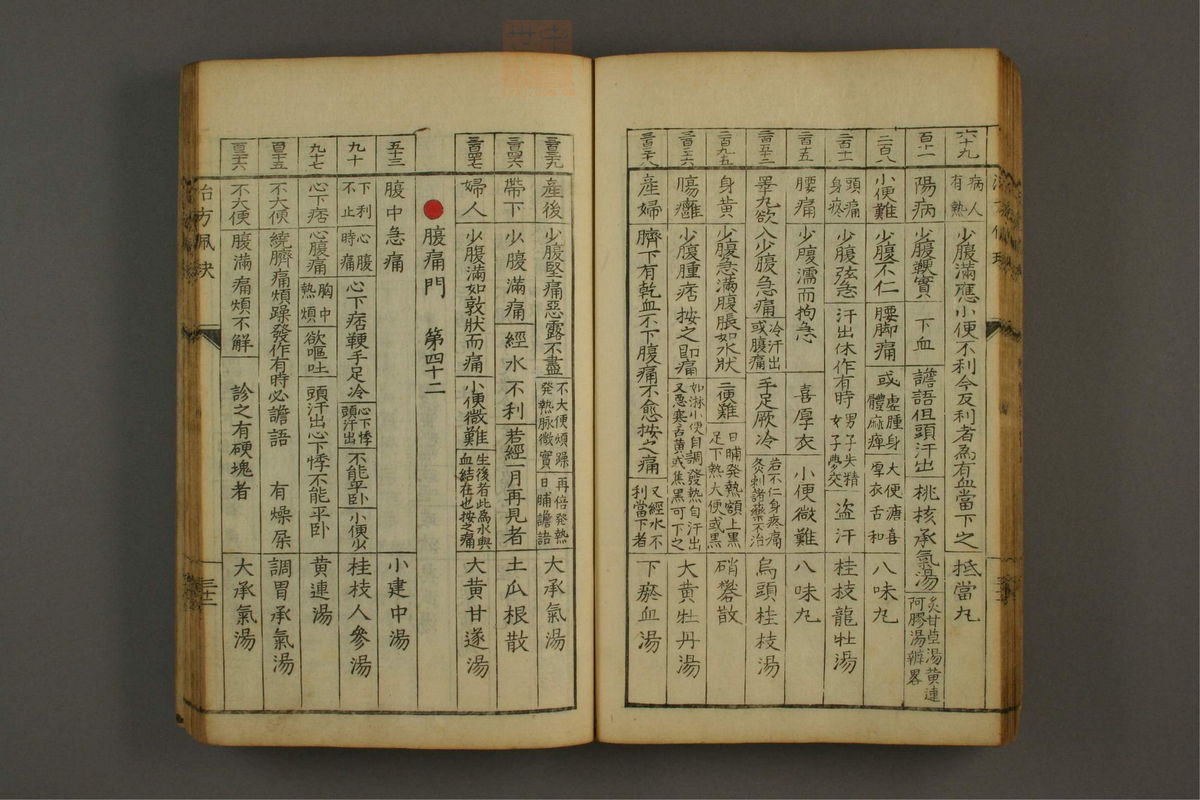 六十九 病人有熱 少腹滿應小便不利今反利者為有血當下之 抵當丸
陽病 少腹鞕實 下血 譫語但頭汗出 桃核承氣湯 炙甘草湯黃連阿膠湯辨畧
二百八 小便難 少腹不仁 腰脚痛 或虛腫身體麻痺 大便溏喜厚衣舌和 八味丸
二百十一 頭痛身疼 少腹弦急 汗出休作有時 男子失精女子夢交 盗汗 桂枝龍牡湯
二百十五 腰痛 少腹濡而拘急 喜厚衣 小便微難 八味丸
睾丸欲入少腹急痛 冷汗出或腹痛 手足厥冷 若不仁身疼痛灸刺諸藥不治 烏頭桂枝湯
二百九五 身黃 少腹急滿腹脹如水狀 二便難 日晡發熱額上黑足下熱大便或黑 硝礬散
腸癰 少腹腫痞按之即痛 如淋小便自調發熱自汗出又惡寒舌黃或焦黑可下之 大黃牡丹湯
產婦 臍下有乾血不下腹痛不愈按之痛 又經水不利當下者 下瘀血湯
產後 少腹堅痛惡露不盡 不大便煩躁發熱脉微實 再倍發熱日晡譫語 大承氣湯
帶下 少腹滿痛 經水不利 若經一月再見者 土瓜根散
婦人 少腹滿如敦狀而痛 小便微難 生後者此為水與血結在也按之痛 大黃甘遂湯
腹痛門 第四十二
五十三 腹中急痛 小建中湯
九十 下利不止 心腹時痛 心下痞鞕手足冷 心下悸頭汗出 不能平卧 小便少 桂枝人參湯
九十七 心下痞 心腹痛 胸中熱煩 欲嘔吐 頭汗出心下悸不能平卧 黃連湯
不大便 繞臍痛煩躁發作有時必譫語 有燥屎 調胃承氣湯
不大便 腹滿痛煩不解 診之有硬塊者 大承氣湯
治方夙訣
三十二